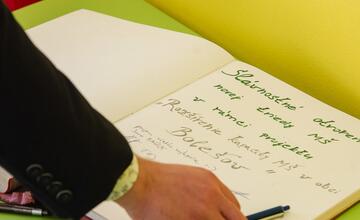 Slávnostné otvorenie
novej triedy MŠ
v rámci projektu
"Rozšírenie kapacity MŠ v obci
Bolešov"